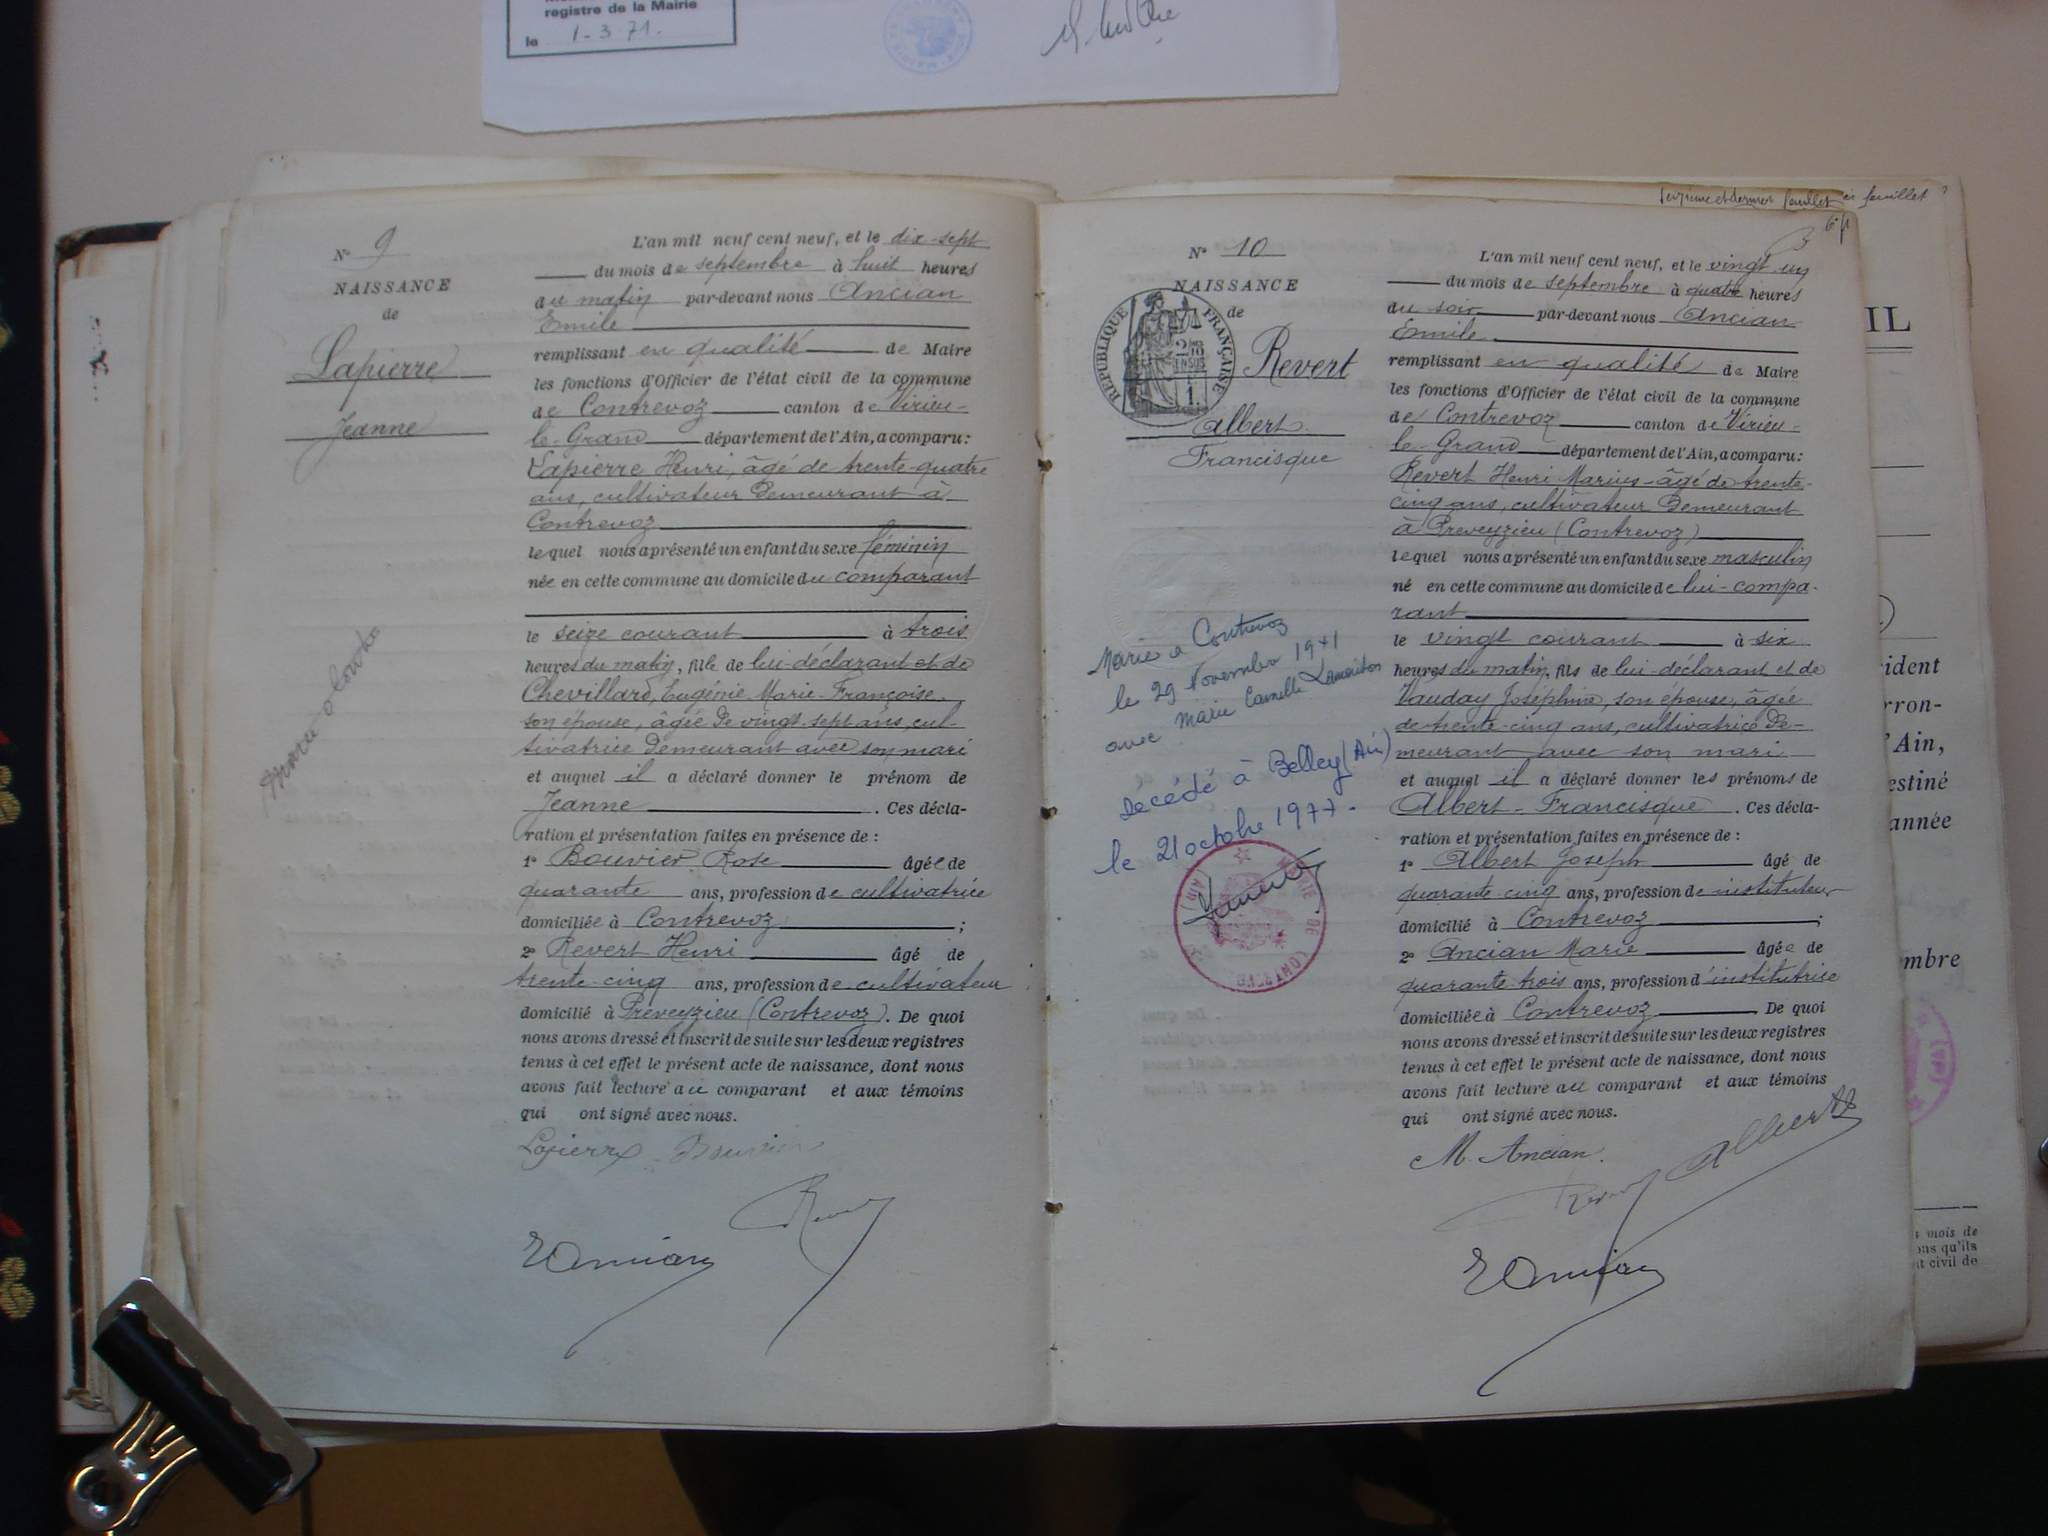 registre de la Mairie
le 1-3 71.
N° 9
NAISSANCE
de
Lapierre
Jeanne
L'an mil neuf cent neuf, et le dix-sept
du mois de septembre à huit heures
du matin par-devant nous Ancian
Emile
remplissant en qualité de Maire
les fonctions d'Officier de l'état civil de la commune
de Contrevoz canton de Virieu-
le-Grand département de l'Ain, a comparu:
Lapierre Henri, âgé de trente-quatre
ans, cultivateur demeurant à
Contrevoz
lequel nous a présenté un enfant du sexe féminin
née en cette commune au domicile du comparant
le seize courant à trois
heures du matin, fille de lui-déclarant et de
Chevillard, Eugénie Marie-Françoise
son épouse, âgée de vingt-sept ans, cul-
tivatrice demeurant avec son mari
et auquel il a déclaré donner le prénom de
Jeanne. Ces décla-
ration et présentation faites en présence de :
1° Bouvier Rose âgée de
quarante ans, profession de cultivatrice
domiciliée à Contrevoz ;
2° Revert Henri âgé de
trente-cinq ans, profession de cultivateur
domicilié à Preveyzieu (Contrevoz). De quoi
nous avons dressé et inscrit de suite sur les deux registres
tenus à cet effet le présent acte de naissance, dont nous
avons fait lecture au comparant et aux témoins
qui ont signé avec nous.
Lapierre Bouvier
Revert
EAncian
feuillet
N° 10
NAISSANCE
de
REPUBLIQUE FRANÇAISE
Revert
Albert
Francisque
Marié à Contrevoz
le 29 Novembre 1941
avec Marie Camille
Décédé à Belley (Ain)
le 21 octobre 1977.
MAIRIE DE CONTREVOZ (AIN)
L'an mil neuf cent neuf, et le vingt-un
du mois de septembre à quatre heures
du soir par-devant nous Ancian
Emile
remplissant en qualité de Maire
les fonctions d'Officier de l'état civil de la commune
de Contrevoz canton de Virieu-
le-Grand département de l'Ain, a comparu:
Revert Henri Marius âgé de trente-
cinq ans, cultivateur demeurant
à Preveyzieu (Contrevoz)
lequel nous a présenté un enfant du sexe masculin
né en cette commune au domicile de lui-compa-
rant
le vingt courant à six
heures du matin, fils de lui-déclarant et de
Vauday Joséphine, son épouse, âgée
de trente-cinq ans, cultivatrice de-
meurant avec son mari
et auquel il a déclaré donner les prénoms de
Albert-Francisque. Ces décla-
ration et présentation faites en présence de :
1° Albert Joseph âgé de
quarante-cinq ans, profession de instituteur
domicilié à Contrevoz ;
2° Ancian Marie âgée de
quarante-trois ans, profession d'institutrice
domiciliée à Contrevoz. De quoi
nous avons dressé et inscrit de suite sur les deux registres
tenus à cet effet le présent acte de naissance, dont nous
avons fait lecture au comparant et aux témoins
qui ont signé avec nous.
M. Ancian. Albert
Revert
EAncian
IL
ident
rron-
'Ain,
estiné
année
mbre
mois de
ons qu'ils
t civil de